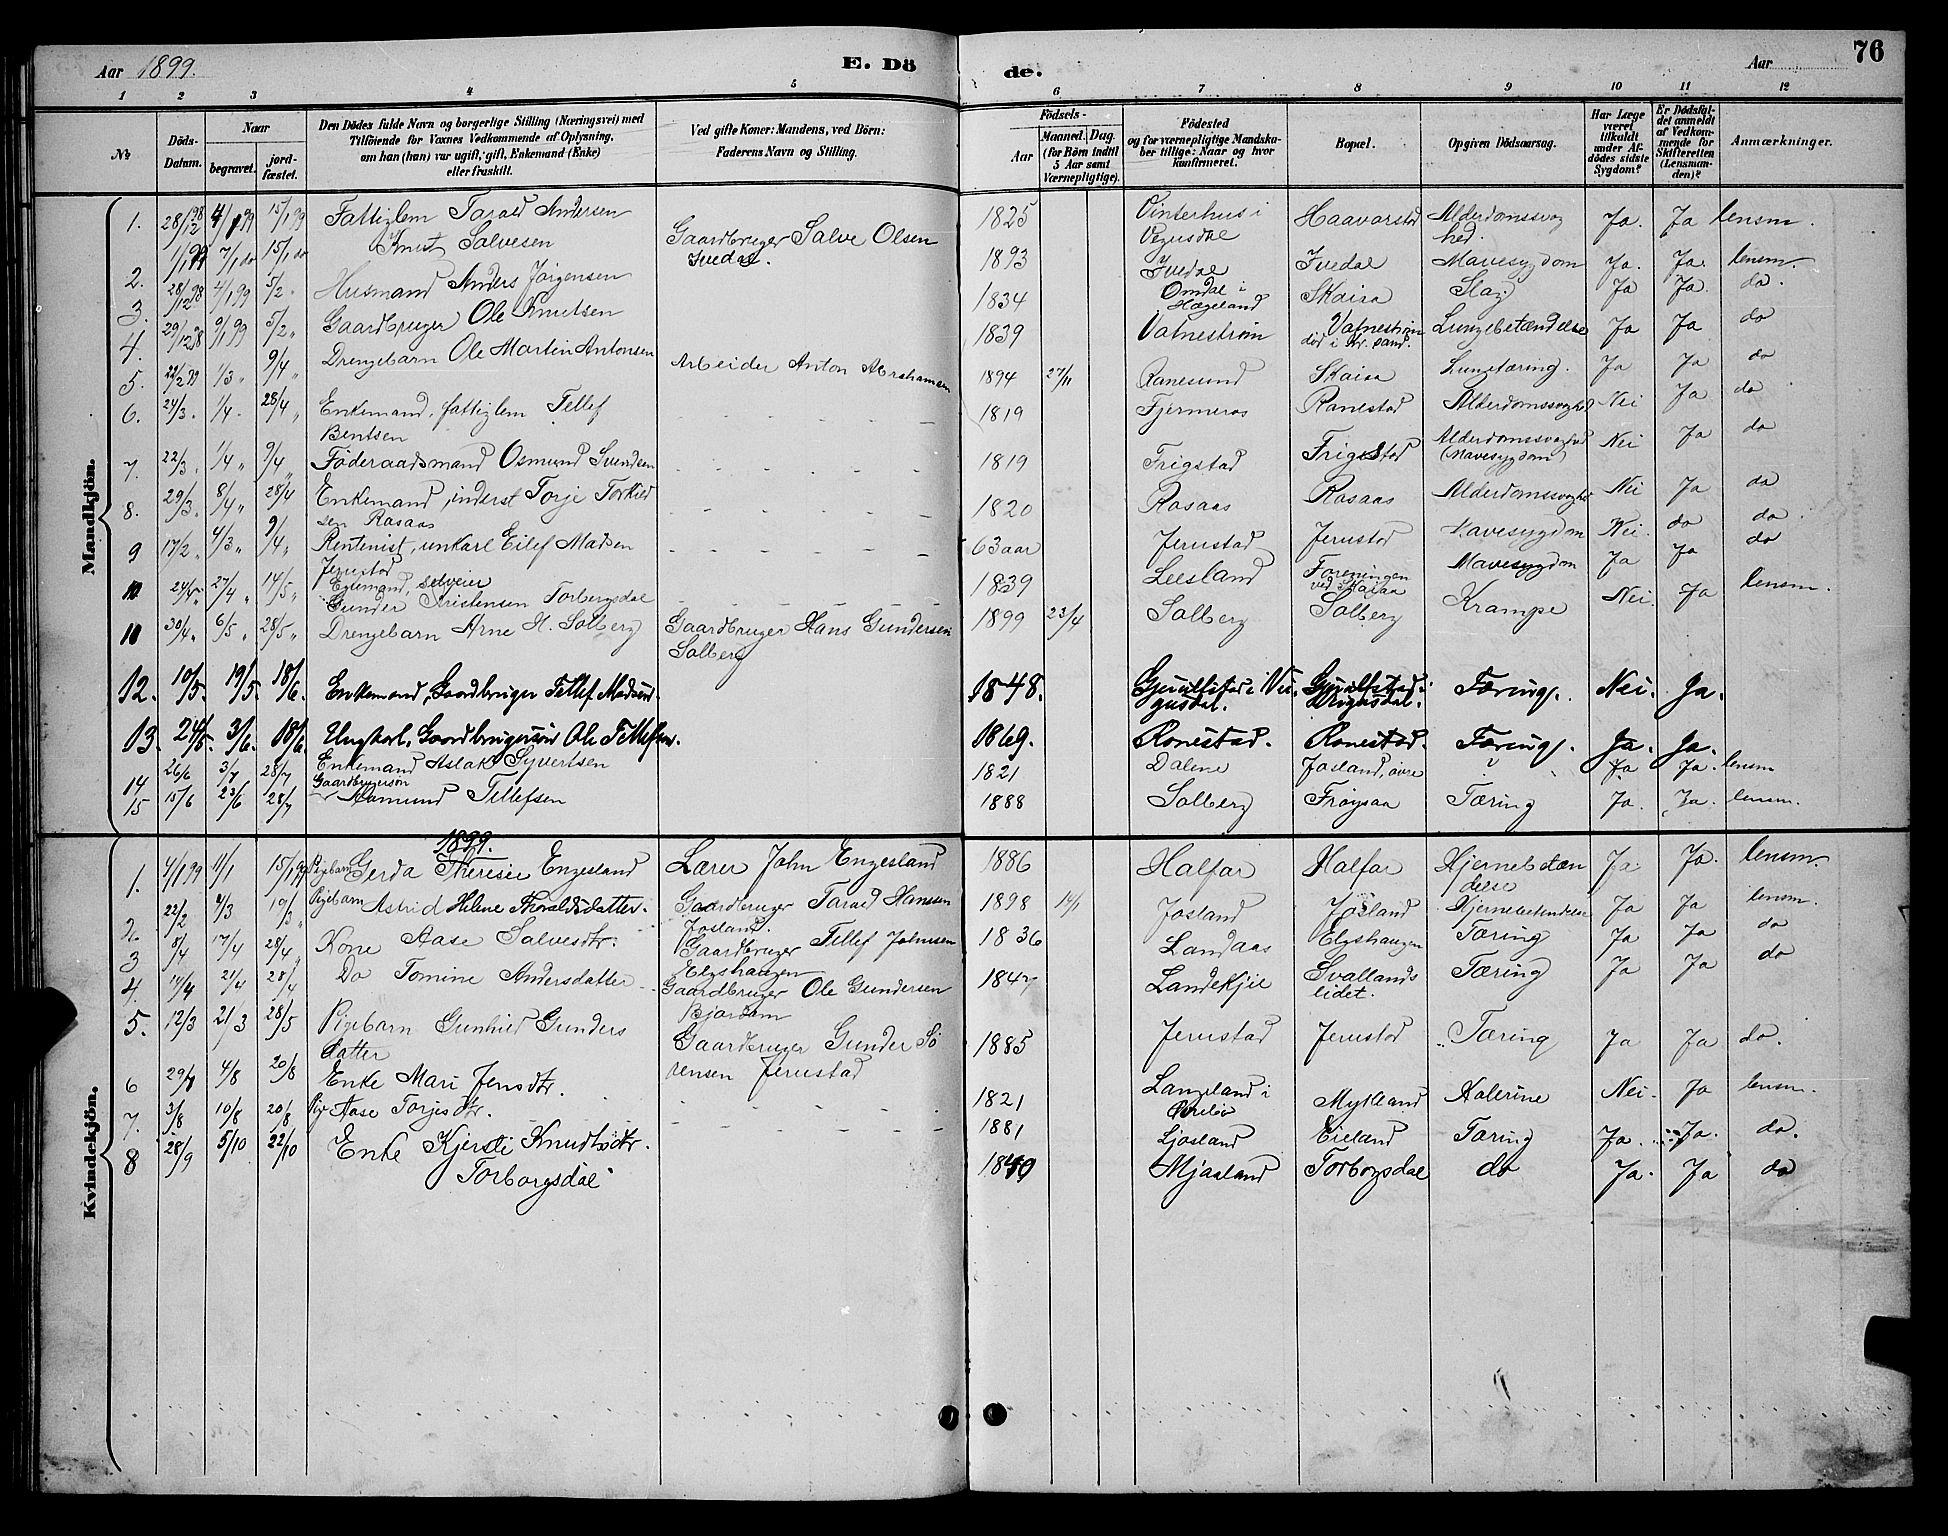 Aar 1899.
E. Dö
de.
Aar
76
1 2 3 4 5 6 7 8 9 10 11 12
No
Döds-Datum.
Naar
begravet.
jord-fæstet.
Den Dödes fulde Navn og borgerlige Stilling (Næringsvei) med
Tilföiende for Voxnes Vedkommende af Oplysning,
om han (hun) var ugift, gift, Enkemand (Enke)
eller fraskilt.
Ved gifte Koner: Mandens, ved Börn:
Faderens Navn og Stilling.
Födsels-
Aar
Maaned. Dag.
(for Börn indtil
5 Aar samt
Værnepligtige).
Födested
og for værnepligtige Mandska-
ber tillige: Naar og hvor
konfirmeret.
Bopæl.
Opgiven Dödsaarsag.
Har Læge
været
tilkaldt
under Af-
dödes sidste
Sygdom?
Er Dödsfal-
det anmeldt
af Vedkom-
mende for
Skifteretten
(Lensman-
den)?
Anmærkninger.
Mandkjön.
1. 28/12 98 4/1 99 15/1 99 Fattiglem Tarald Andersen 1825 Vinterhus i Vegusdal Haavorstad Alderdomssvaghed. Ja. Ja lensm.
2. 1/1 99 7/1 do 15/1 do Knut Salvesen Gaardbruger Salve Olsen Ivedal. 1893 Ivedal Ivedal Mavesygdom Ja. Ja. lensm.
3. 28/12 98 4/1 99 5/2 " Husmand Anders Jörgensen 1834 Omdal i Hægeland Skaisa Slag. Ja Ja. do.
4. 29/12 98 9/1 99 5/2 " Gaardbruger Ole Knutsen 1839 Vatnestrøm Vatnestrøm död i Kr.sand. Lungebetændelse Ja Ja do
5. 22/2 99 1/3 " 9/4 " Drengebarn Ole Martin Antonsen Arbeider Anton Abrahamsen 1894 27/11 Ranesund Skaisa Lungetæring. Ja Ja do
6. 24/3 . 1/4 . 28/4 " Enkemand, fattiglem Tellef Bentsen 1819 Fjermeros Ranestad Alderdomssvaghed Nei Ja. do
7. 22/3 . 1/4 " 9/4 " Föderaadsmand Osmund Svendsen 1819 Frigstad Frigstad Alderdomssvaghed (Mavesygdom) Nei Ja do
8. 29/3 . 8/4 " 28/4 Enkemand, inderst Torje Torkildsen Rosaas 1820 Rosaas Rosaas Alderdomssvaghed Nei Ja do
9 17/2 " 4/3 " 9/4 " Rentenist, unkarl Eilef Madsen Jerustad 63 aar Jerustad Jerustad Mavesygdom Nei. do do.
10 24/4 " 27/4 " 14/5 " Egtemand, selveier Gunder Kristensen Torborgsdal 1839 Leesland Foreningen ved Skaisa Mavesygdom Ja Ja do
11 30/4 " 6/5 " 28/5 " Drengebarn Arne H. Solberg Gaardbruger Hans Gundersen Solberg 1899 23/4 Solberg Solberg Krampe Nei. Ja lensm.
12. 10/5. 19/5. 18/6. Enkemand, Gaardbruger Tellef Madsen. 1848. Gjerulfstad i Vegusdal. Gjerulfstad i Vegusdal. Tæring. Nei. Ja.
13. 24/5. 3/6. 18/6. Ungkarl, Gaardbrugersön Ole Tellefsen. 1869. Ronestad. Ronestad. Tæring. Ja. Ja.
14 26/6 3/7 28/7 Enkemand Aslak Syvertsen 1821 Dalene Josland, övre ? Ja Ja. lensm
15 15/6 23/6 28/7 Gaardbrugersøn Aamund Tellefsen 1888 Solberg Frøysaa Tæring Ja. Ja. lensm.
Kvindekjön.
1899.
1. 4/1 99 11/1 15/1 99 Pigebarn Gerda Theresie Engesland Lærer John Engesland 1886 Halfar Halfar Hjernebetændelse Ja. Ja. lensm.
2. 22/2 4/3 19/3 " Pigebarn Astrid Helene Thoraldsdatter. Gaardbruger Tarald Hanssen Josland. 1898 14/1 Josland Josland Hjernebetændelse Ja Ja lensm.
3 8/4 17/4 28/4 " Kone Aase Salvesdtr. Gaardbruger Tellef Johnsen Elgshaugen 1836 Landaas Elgshaugen Tæring Ja Ja do
4. 14/4 21/4 28/4 Do Tomine Andersdatter Gaardbruger Ole Gundersen 1847 Landekjie Svallandslidet. Tæring Ja Ja do
5. 12/3 21/3 28/5 Pigebarn Gunhild Gundersdatter Gaardbruger Gunder Sörensen Jerustad 1885 Jerustad Jerustad Tæring Ja Ja do.
6 29/7 4/8 20/8 Enke Mari Jensdtr. 1821 Langeland i Mykland Kolerine Nei. Ja lensm.
7. 3/8 10/8 20/8 Pige Aase Torjesdtr. 1881 Ljosland Eieland Tæring Ja. Ja. do.
8 28/9 5/10 22/10 Enke Kjersti Knudtsdtr. Torborgsdal 1840 Mjaaland Torborgsdal do Ja. Ja do